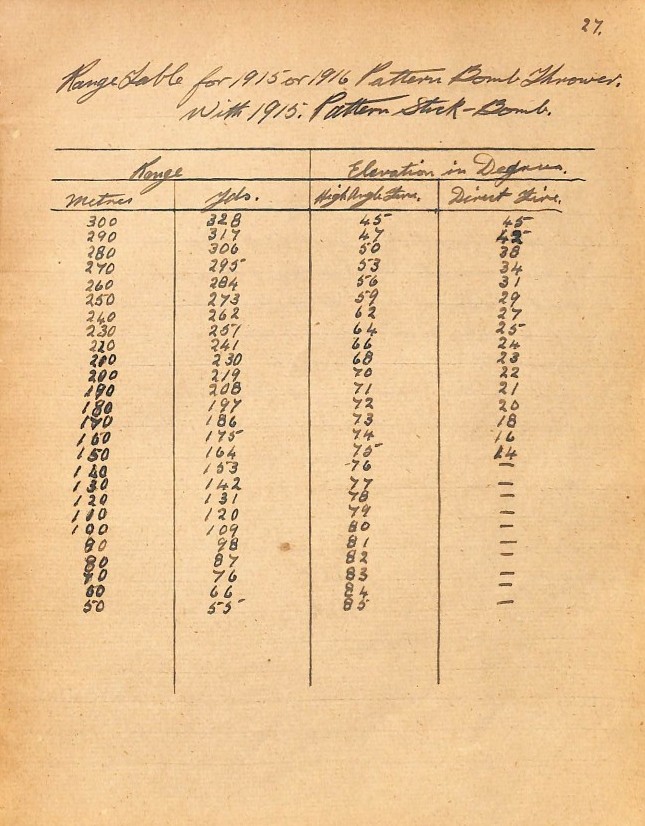 27.
Range Table for 1915 or 1916 Pattern Bomb Thrower.
With 1915. Pattern Stick-Bomb.
Range Elevation in Degrees.
Metres Yds. High Angle Fire. Direct Fire.
300 328 45 45
290 317 47 42
280 306 50 38
270 295 53 34
260 284 56 31
250 273 59 29
240 262 62 27
230 251 64 25
220 241 66 24
210 230 68 23
200 219 70 22
190 208 71 21
180 197 72 20
170 186 73 18
160 175 74 16
150 164 75 14
140 153 76 —
130 142 77 —
120 131 78 —
110 120 79 —
100 109 80 —
90 98 81 —
80 87 82 —
70 76 83 —
60 66 84 —
50 55 85 —